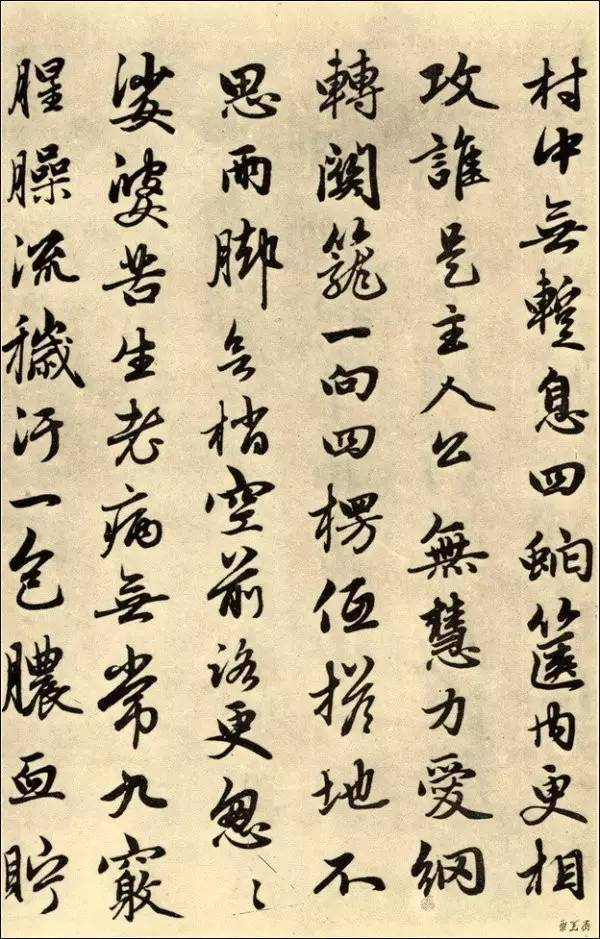 村中無暫息四虵篋内更相
攻誰是主人公無慧力愛網
轉關籠一向四楞但搭地不
思兩脚无梢空前路更怱〻
娑婆苦生老病無常九竅
腥臊流穢汙一包膿血貯